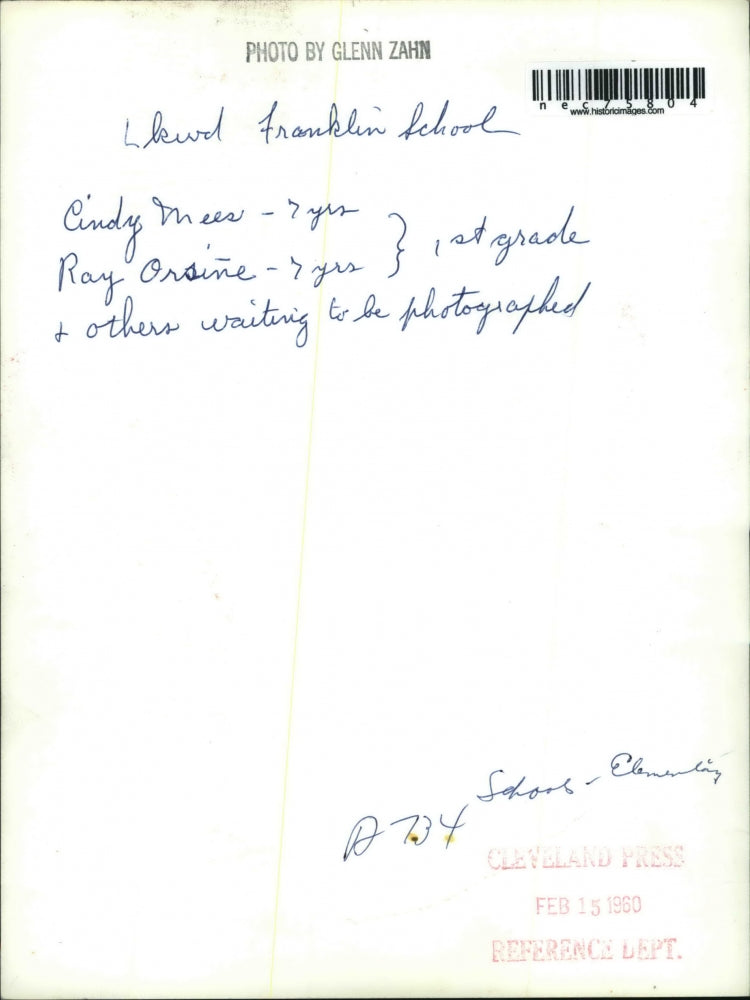 PHOTO BY GLENN ZAHN
nec75804
www.historicimages.com
Lkwd Franklin School
Cindy Mees - 7 yrs
Ray Orsine - 7 yrs } 1st grade
& others waiting to be photographed
Schools - Elementary
A 734
CLEVELAND PRESS
FEB 15 1960
REFERENCE DEPT.